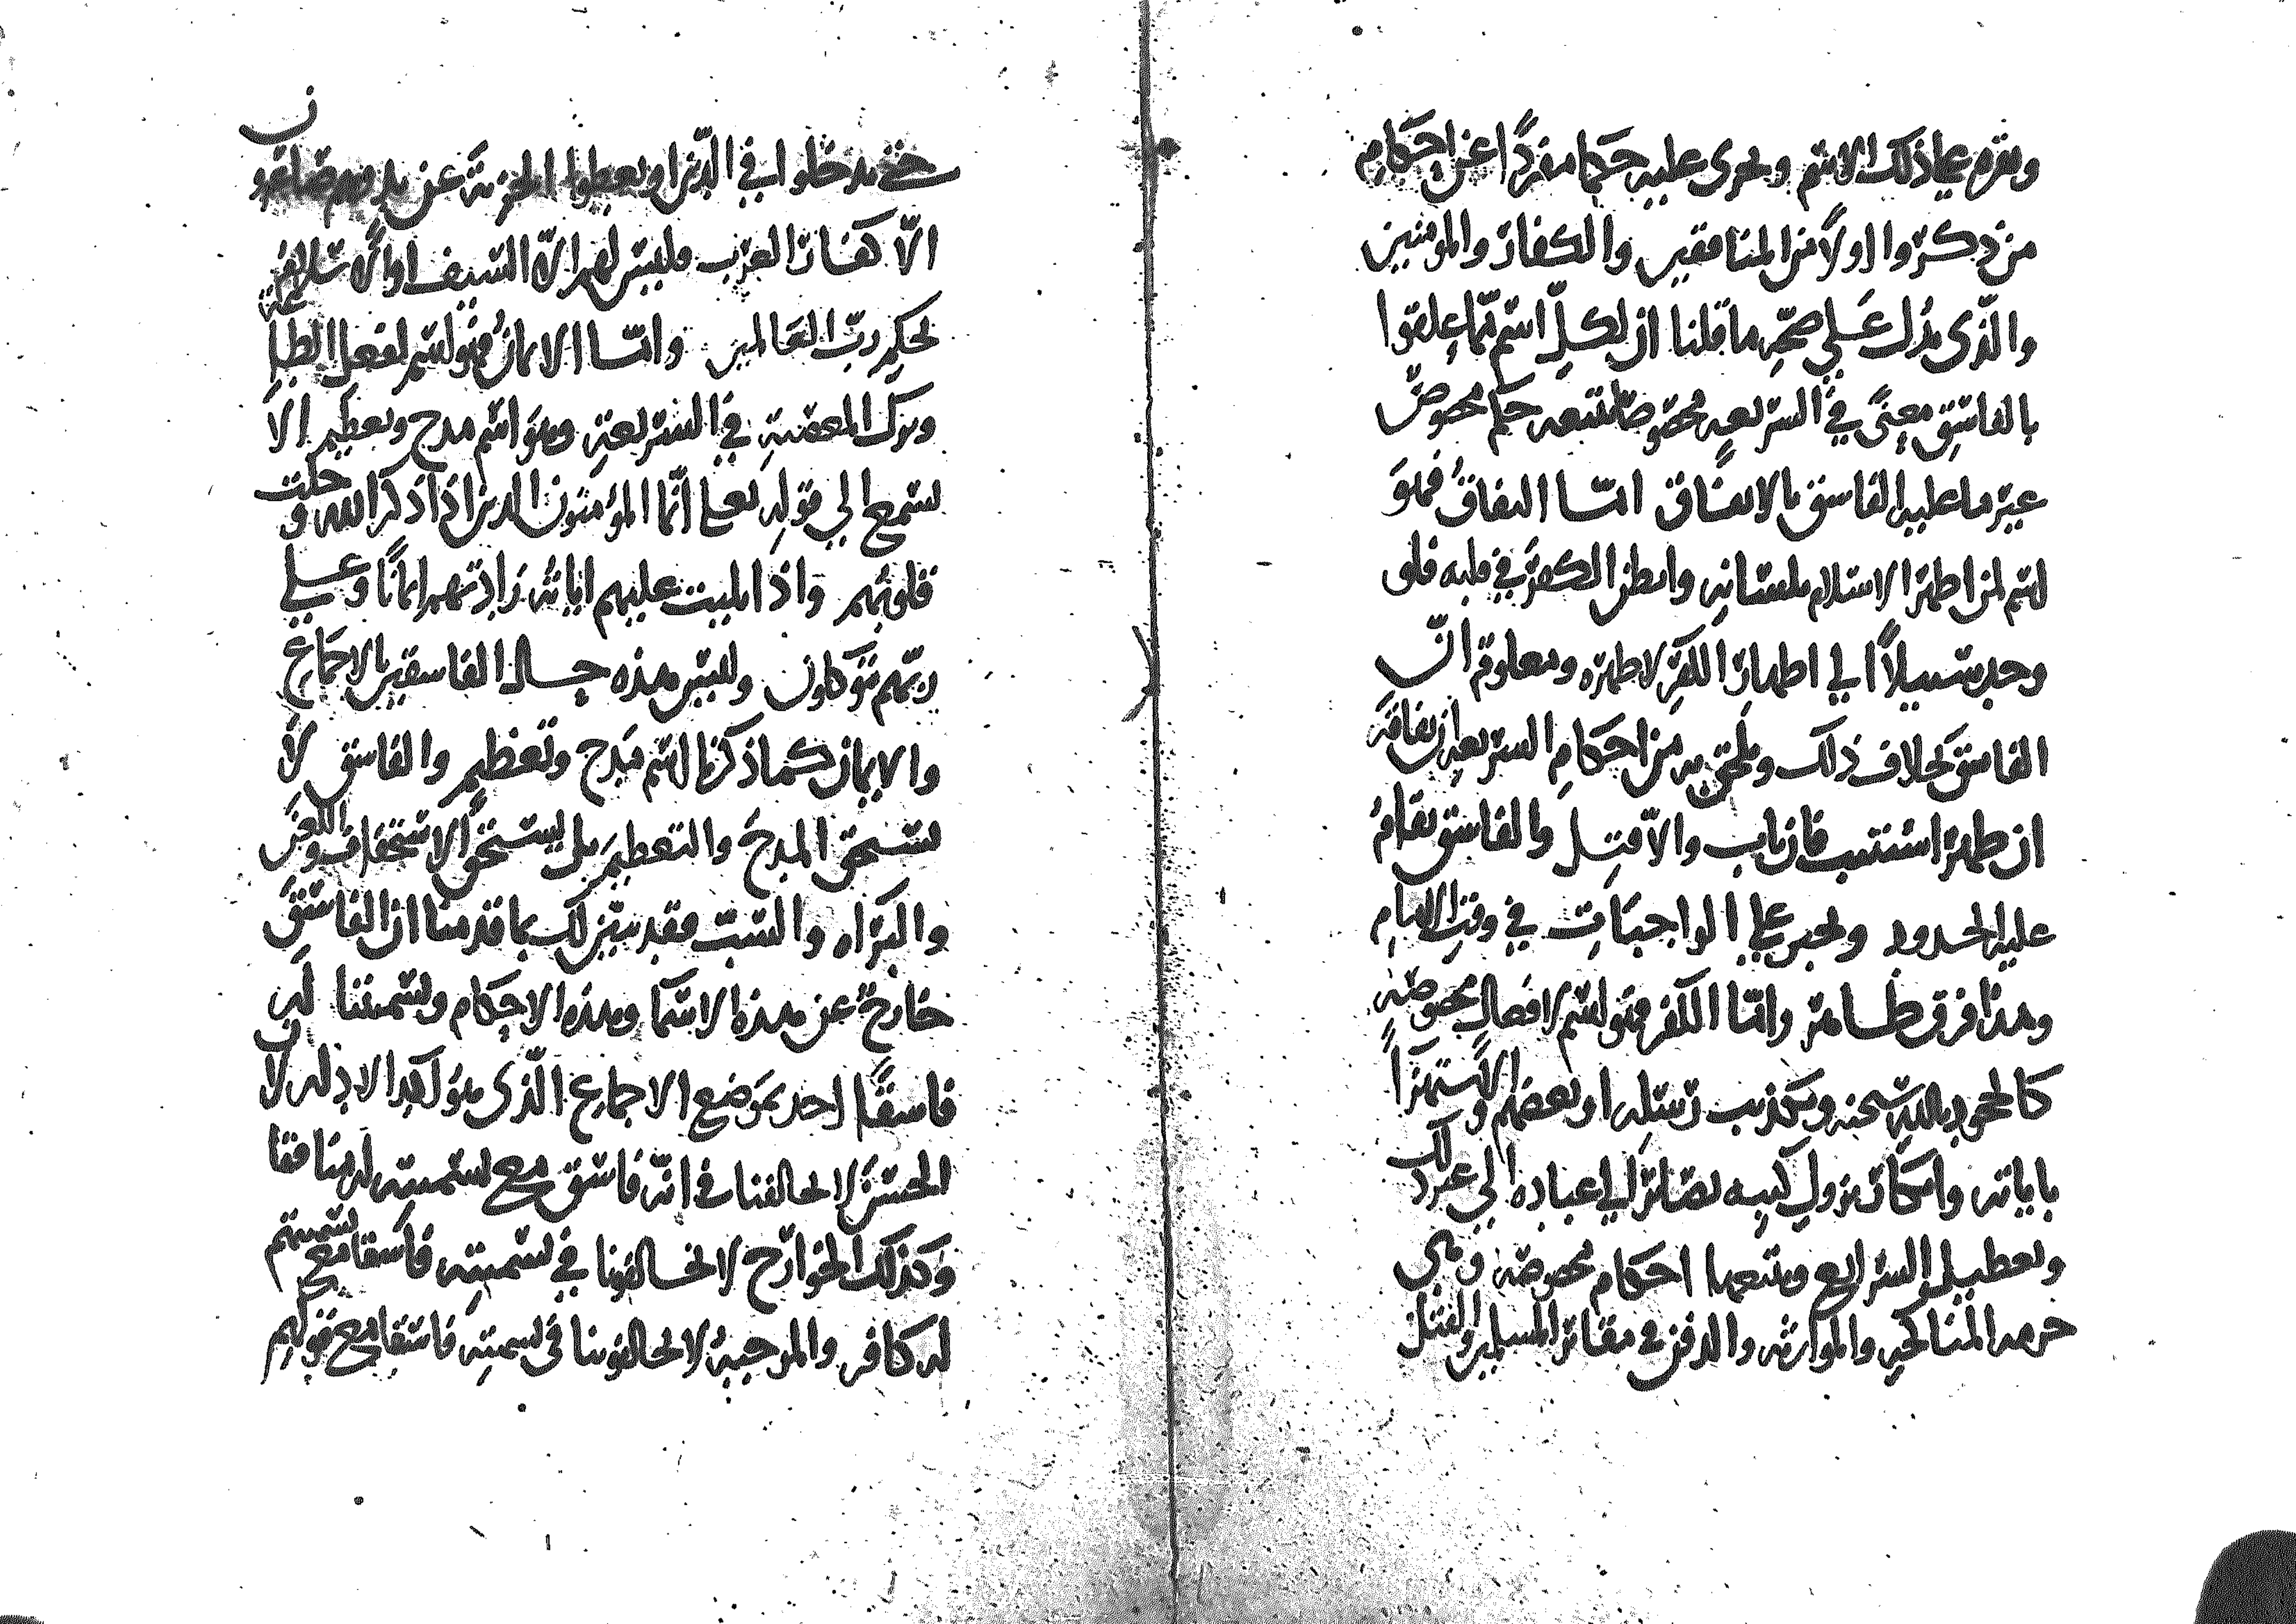 ونقره على ذلك الاسم ونجري عليه حكما مفردًا عن احكام
من ذكروا اولاً من المنافقين والكفار والمومنين
والذي يدل على صحة ما قلنا ان لكل اسم مما علقوا
بالفاسق معنًى في الشريعة مخصوصا يتبعه حكم مخصوص
غير ما عليه الفاسق بالاتفاق اما النفاق فهو
اسم لمن اظهر الاسلام بلسانه وابطن الكفر في قلبه فلو
وجد سبيلاً الى اظهار الكفر لاظهره ومعلوم ان
الفاسق بخلاف ذلك ويلحق به من احكام الشريعة ان نفاقه
ان ظهر استتيب فان تاب والا قتل والفاسق تقام
عليه الحدود ويجبر على الواجبات في وقت الامام
وهذا فرق ظاهر واما الكفر فهو اسم لافعال مخصوصة
كالجحود بالله سبحنه وتكذيب رسله او بعضهم والاستهزاء
باياته وانكار نزول كتبه لصلاتها الى عباده الى غير ذلك
وتعطيل الشرايع ويتبعها احكام مخصوصة وهي
حرمة المناكحة والموارثة والدفن في مقابر المسلمين والقتل
حتى يدخلوا في الدين او يعطوا الجزية عن يد وهم صاغرون
الا كفار العرب فليس لهم الا السيف او الاسلام
بحكم رب العالمين واما الايمان فهو اسم لفعل الطاعة
وترك المعصية في الشريعة وهو اسم مدح وتعظيم الا
تسمع الى قوله تعلى انما المؤمنون الذين اذا ذكر الله وجلت
قلوبهم واذا تليت عليهم اياته زادتهم ايمانًا وعلى
ربهم يتوكلون وليس هذه حال الفاسقين بالاجماع
والايمان كما ذكرنا اسم مدح وتعظيم والفاسق لا
يستحق المدح والتعظيم بل يستحق الاستخفاف واللعن
والبراه والسب فقد تبين لك بما قدمنا ان الفاسق
خارج عن هذه الاسما وهذه الاحكام وتسميتنا له
فاسقًا اخذ بموضع الاجماع الذي هو اكد الادلة لان
الحسن لا يخالفنا في انه فاسق مع تسميته له منافقا
وكذلك الخوارج لا يخالفوننا في تسميته فاسقا مع تسميتهم
له كافر والمرجية لا يخالفوننا في تسميته فاسقا مع قولهم